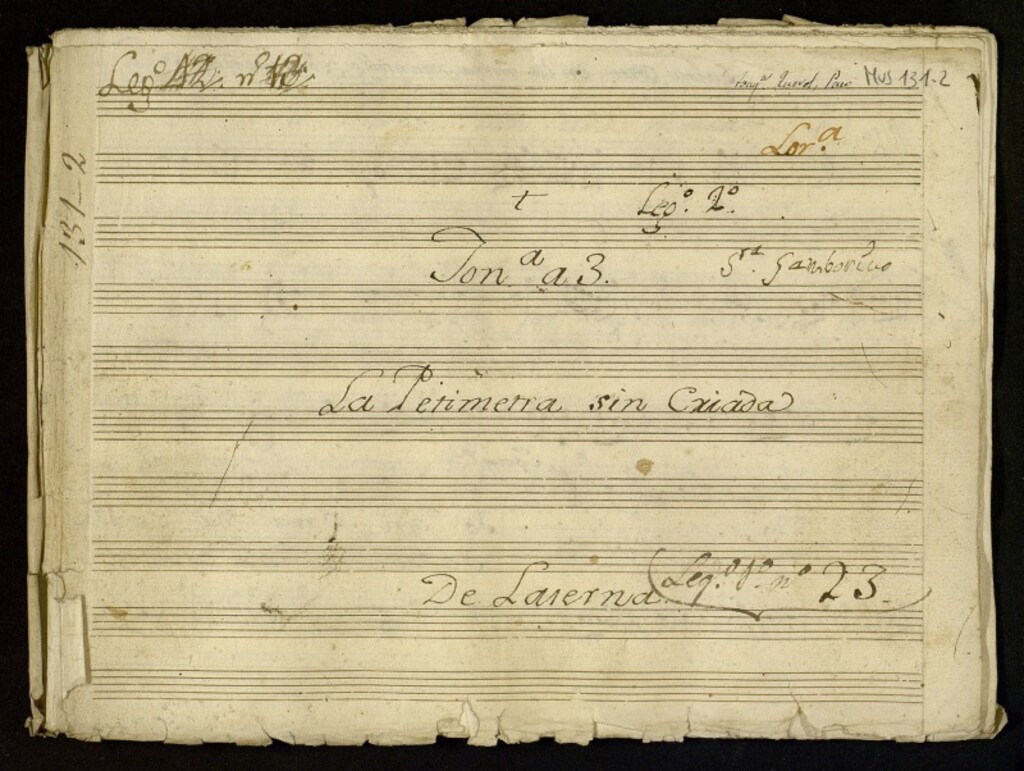 Leg.º 12. nº 13
MUS 131-2
131-2
Lor.ª
+
Leg.º 2º.
Ton.ª a 3.
S.ra Gamborino
La Petimetra sin Criada
De Laserna
Leg.º 1º nº 23